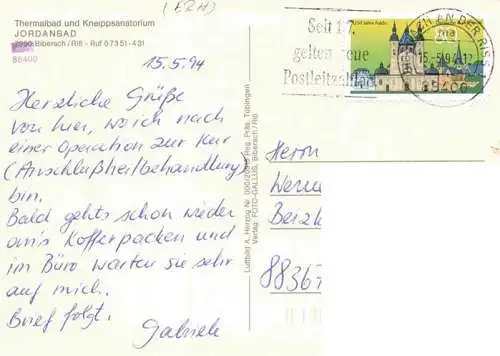 (ERH)
Thermalbad und Kneippsanatorium
JORDANBAD
7950 Biberach/Riß - Ruf 07351-431
88400
15.5.94
Herzliche Grüße
von hier, wo ich nach
einer Operation zur Kur
(Anschlußheilbehandlung)
bin.
Bald gehts schon wieder
an's Kofferpacken und
im Büro warten sie sehr
auf mich.
Brief folgt.
Gabriele
Luftbild A. Herzog Nr. Reg. Präs. Tübingen
Verlag: FOTO-GALLUS, Biberach/Riß
Seit 1.7.
gelten neue
Postleitzahlen
1250 Jahre Fulda
AN DER RISS
15-5.94-12
88400
Herrn
Werner
8836